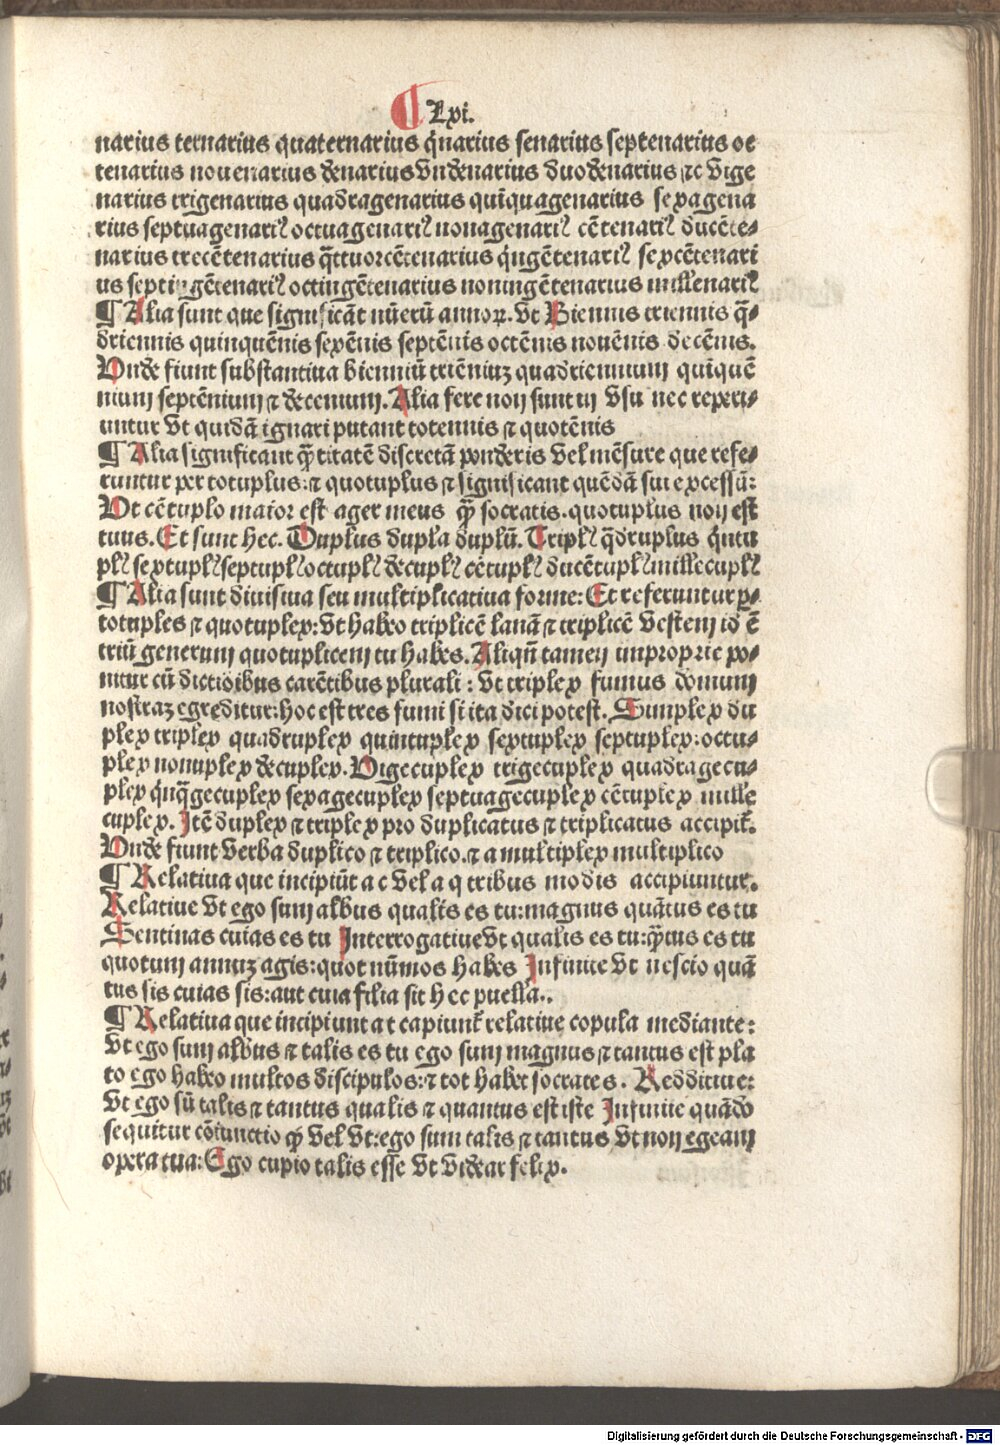 ¶ Lxi.
narius ternarius quaternarius q̇narius senarius septenarius oc
tenarius nouenarius denarius vndenarius duodenarius ⁊c vige
narius trigenarius quadragenarius quīquagenarius sexagena
rius septuagenariꝰ octuagenariꝰ nonagenariꝰ cētenariꝰ ducēte⸗
narius trecētenarius q̄ttuorcētenarius q̇ngētenariꝰ sexcētenari
us septingētenariꝰ octingētenarius noningētenarius millenariꝰ
¶ Alia sunt que significāt nūerū annoꝝ. vt Biennis triennis q̄⸗
driennis quinquēnis sexēnis septēnis octēnis nouēnis decēnis.
Vnde fiunt substantiua bienniū triēniuz quadriennium quīquē
nium septēnium ⁊ decenium. Alia fere non sunt in vsu nec reperi⸗
untur vt quidā ignari putant totennis ⁊ quotēnis
¶ Alia significant q̄ titatē discretā ponderis vel mēsure que refe⸗
runtur per totuplus: ⁊ quotuplus ⁊ significant quēdā sui excessū:
Vt cētuplo maior est ager meus q̄ socratis. quotuplus non est
tuus. Et sunt hec. Duplus dupla duplū. Triplꝰ q̄druplus q̇ntu
plꝰ sextuplꝰ septuplꝰ octuplꝰ decuplꝰ cētuplꝰ ducētuplꝰ millecuplꝰ
¶ Alia sunt diuisiua seu multiplicatiua forme: Et referuntur ꝑ⸗
totuples ⁊ quotuplex: vt habeo triplicē lanā ⁊ triplicē vestem id ē
triū generum quotuplicem tu habes. Aliqn̄ tamen improprie po⸗
nitur cū dictiōibus carētibus plurali: vt triplex fumus domum
nostraz egreditur: hoc est tres fumi si ita dici potest. Simplex du
plex triplex quadruplex quintuplex sextuplex septuplex: octu⸗
plex nonuplex decuplex. Vigecuplex trigecuplex quadragecu⸗
plex q̇nq̄gecuplex sexagecuplex septuagecuplex cētuplex mille
cuplex. Itē duplex ⁊ triplex pro duplicatus ⁊ triplicatus accipit᷑.
Vnde fiunt verba duplico ⁊ triplico. ⁊ a multiplex multiplico
¶ Relatiua que incipiūt a c vel a q tribus modis accipiuntur.
Relatiue vt ego sum albus qualis es tu: magnus quātus es tu
Sentinas cuias es tu Interrogatiue vt qualis es tu: q̄tus es tu
quotum annuz agis: quot nūmos habes Infinite vt nescio quā
tus sis cuias sis: aut cuia filia sit hec puella..
¶ Relatiua que incipiunt a t capiunt᷑ relatiue copula mediante:
vt ego sum albus ⁊ talis es tu ego sum magnus ⁊ tantus est pla
to ego habeo multos discipulos: ⁊ tot habet socrates. Redditiue:
vt ego sū talis ⁊ tantus qualis ⁊ quantus est iste Infinite quādo
sequitur cōiunctio ꝙ vel vt: ego sum talis ⁊ tantus vt non egeam
opera tua: Ego cupio talis esse vt videar felix.
Digitalisierung gefördert durch die Deutsche Forschungsgemeinschaft - DFG